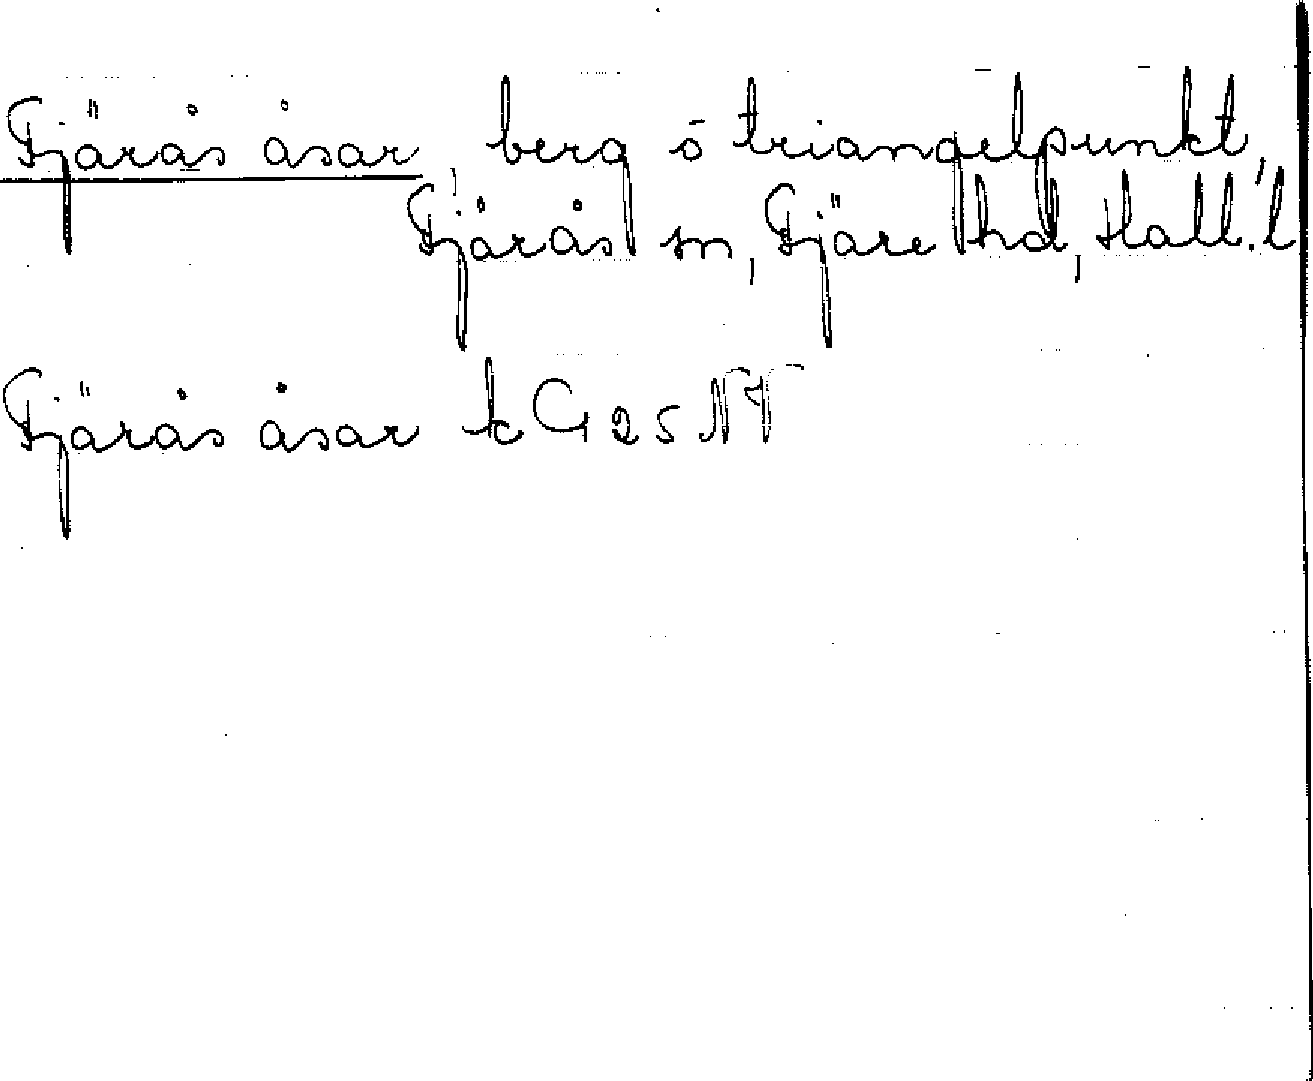 Fjärås åsar, berg ō triangelpunkt,
Fjärås sn, Fjäre hd, Hall. l
Fjärås åsar k G 25 NV